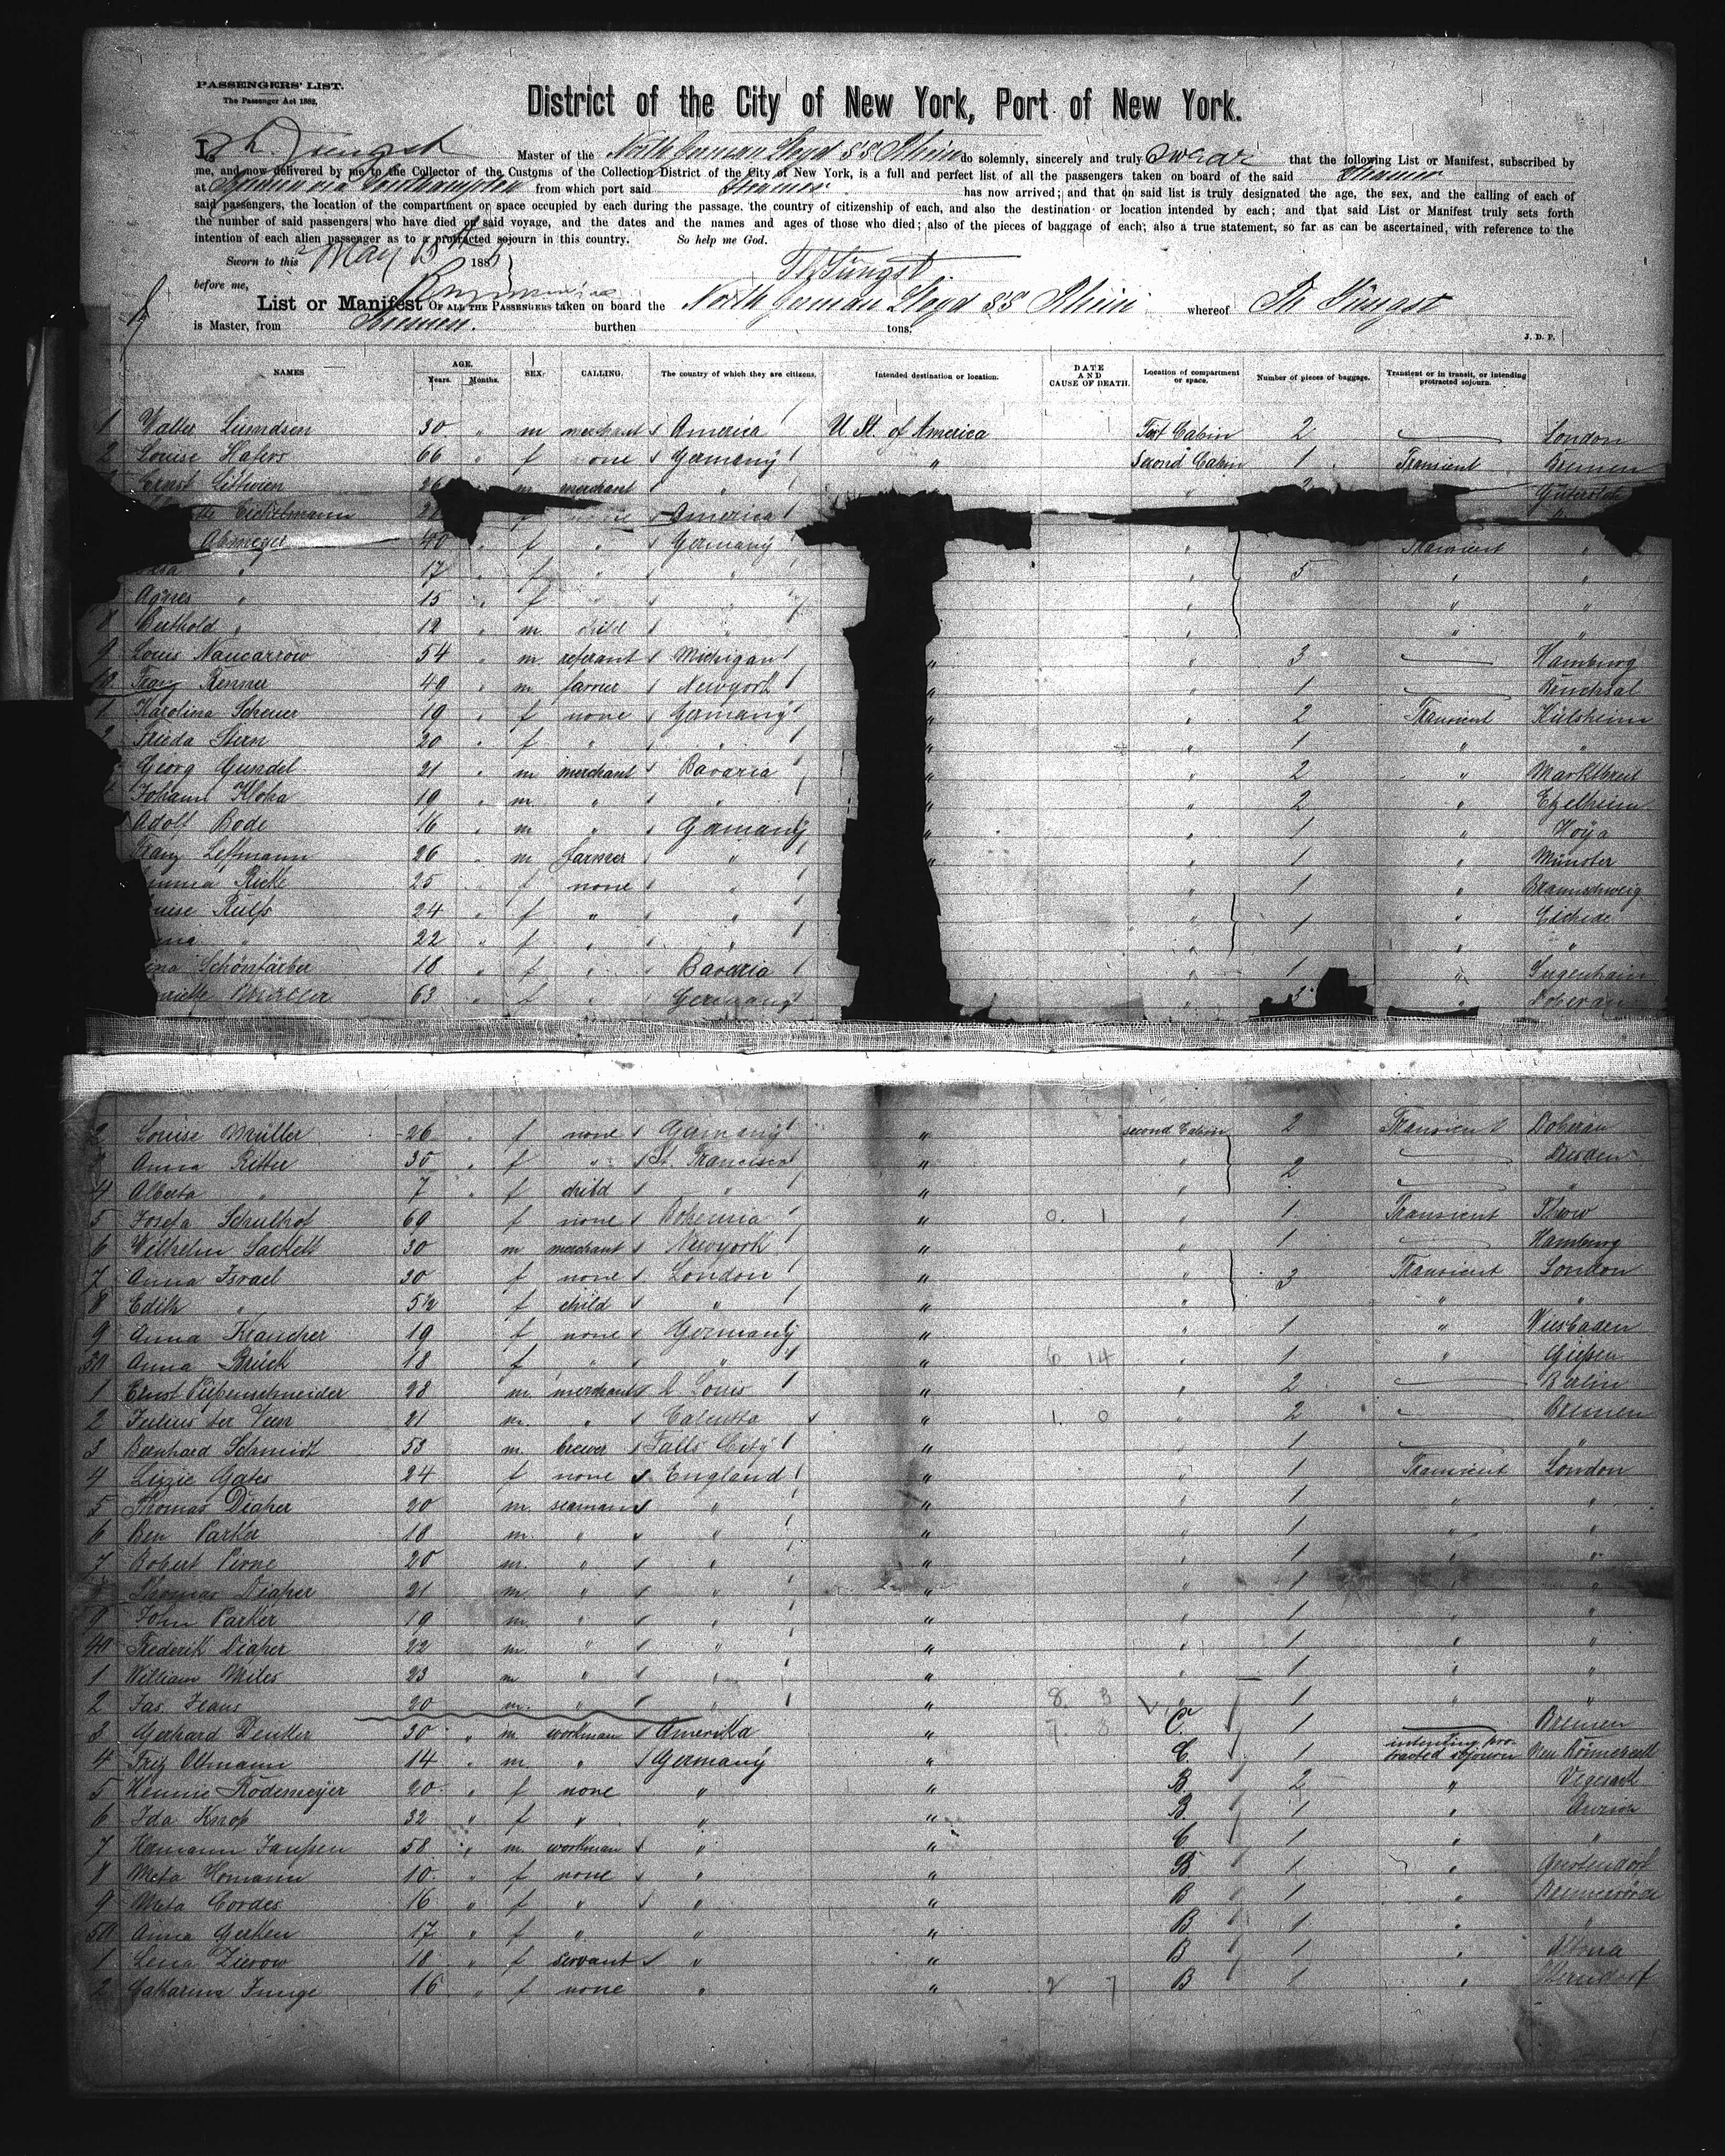 PASSENGERS' LIST.
The Passenger Act 1882.
District of the City of New York, Port of New York.
I, Th. Jüngst Master of the North German Lloyd SS Rhein do solemnly, sincerely and truly swear that the following List or Manifest, subscribed by
me, and now delivered by me to the Collector of the Customs of the Collection District of the City of New York, is a full and perfect list of all the passengers taken on board of the said Steamer
at Bremen via Southampton from which port said Steamer has now arrived; and that on said list is truly designated the age, the sex, and the calling of each of
said passengers, the location of the compartment or space occupied by each during the passage, the country of citizenship of each, and also the destination or location intended by each; and that said List or Manifest truly sets forth
the number of said passengers who have died on said voyage, and the dates and the names and ages of those who died; also of the pieces of baggage of each; also a true statement, so far as can be ascertained, with reference to the
intention of each alien passenger as to a protracted sojourn in this country. So help me God.
Sworn to this May 188
Th Jüngst
before me,
List or Manifest OF ALL THE PASSENGERS taken on board the North German Lloyd SS Rhein whereof Th Jüngst
is Master, from Bremen. burthen tons.
J. D. P.
NAMES AGE. Years. Months. SEX. CALLING. The country of which they are citizens. Intended destination or location. DATE AND CAUSE OF DEATH. Location of compartment or space. Number of pieces of baggage. Transient or in transit, or intending protracted sojourn.
1 Walter 30 " m merchant America U St. of America First Cabin 2 London
2 Louise 66 " f none Germany " Second Cabin 1 Transient Bremen
Ernst 26 m merchant " Gütersloh
27 America
40 " f " Germany " Transient "
" 17 " f " " " 5 " "
Agnes " 15 " f " " " " "
8 Berthold " 12 " m. child " " " "
9 Louis Nancarrow 54 " m Michigan " " 3 Hamburg
10 Franz Renner 49 " m. farrier Newyork " " 1 Bruchsal
1 Karolina Scheuer 19 " f none Germany " " 2 Transient Külsheim
2 Frieda Stern 20 " f " " " " 1 " "
Georg Gundel 21 " m merchant Bavaria " " 2 " Marktbreit
Johann Kloha 19 " m. " " " " 2 " Ezelheim
Adolf Bode 16 " m " Germany " " 1 " Hoya
Franz Leffmann 26 " m farmer " " " 1 " Münster
25 f none " " 1 " Braunschweig
24 " f " " " 1 " Eschede
" 22 " f " " " " "
Schönfärber 18 " f " Bavaria " 1 " Sugenheim
Müller 63 " f " Germany " Doberan
2 Louise Müller 26 " f none Germany " second Cabin 2 Transient Doberan
3 Anna Ritter 30 " f " St. Francisco " " 2 Dresden
4 Alberta " 7 " f child " " " "
5 Josefa Schulhof 60 f none Bohemia " 0. 1 " 1 Transient
6 Wilhelm Sackett 30 m merchant Newyork " " 1 Hamburg
7 Anna Israel 30 f none London " " 3 Transient London
8 Edith " 5½ f child " " " " "
9 Anna Krancher 19 f none Germany " " 1 " Wiesbaden
30 Anna Brück 18 f " " " 6 14 " 1 " Gießen
1 Ernst Piepenschneider 28 m. merchant St Louis " " 2 Berlin
2 Julius ter Veen 21 m. " Calcutta " 1. 0 " 2 Bremen
3 Bernhard Schmidt 53 m. brewer Falls City " " 1 "
4 Lizzie Gates 24 f none England " " 1 Transient London
5 Thomas Diaper 20 m. seaman " " " 1 " "
6 Ben Parker 18 m. " " " " 1 " "
7 Robert Pirne 20 m. " " " " 1 " "
8 Thomas Diaper 21 m. " " " " 1 " "
9 John Parker 19 m. " " " " 1 " "
40 Frederik Diaper 22 m. " " " " 1 " "
1 William Miles 23 m " " " " 1 " "
2 Jas. Jeans 20 m. " " " 8. 3 " 1 " "
3 Gerhard Denker 30 " m workman Amerika " 7. 3 C. 1 Bremen
4 Fritz Oltmann 14 " m. " Germany " C. 1 intending protracted sojourn
5 Hennie Rödemeyer 20 " f none " " B. 2 " Vegesack
6 Ida Knop 32 " f " " " B. 1 " Aurich
7 Hermann Janßen 58 " m. workman " " C 1 " "
8 Meta Homann 10 " f none " " B 1 "
9 Meta Cordes 16 " f " " " B 1 " Bremervörde
50 Anna Gerken 17 " f " " " B. 1 " "
1 Lena Zierow 18 " f servant " " B 1 " Altona
2 Catharina Junge 16 " f none " " 2 7 B 1 "